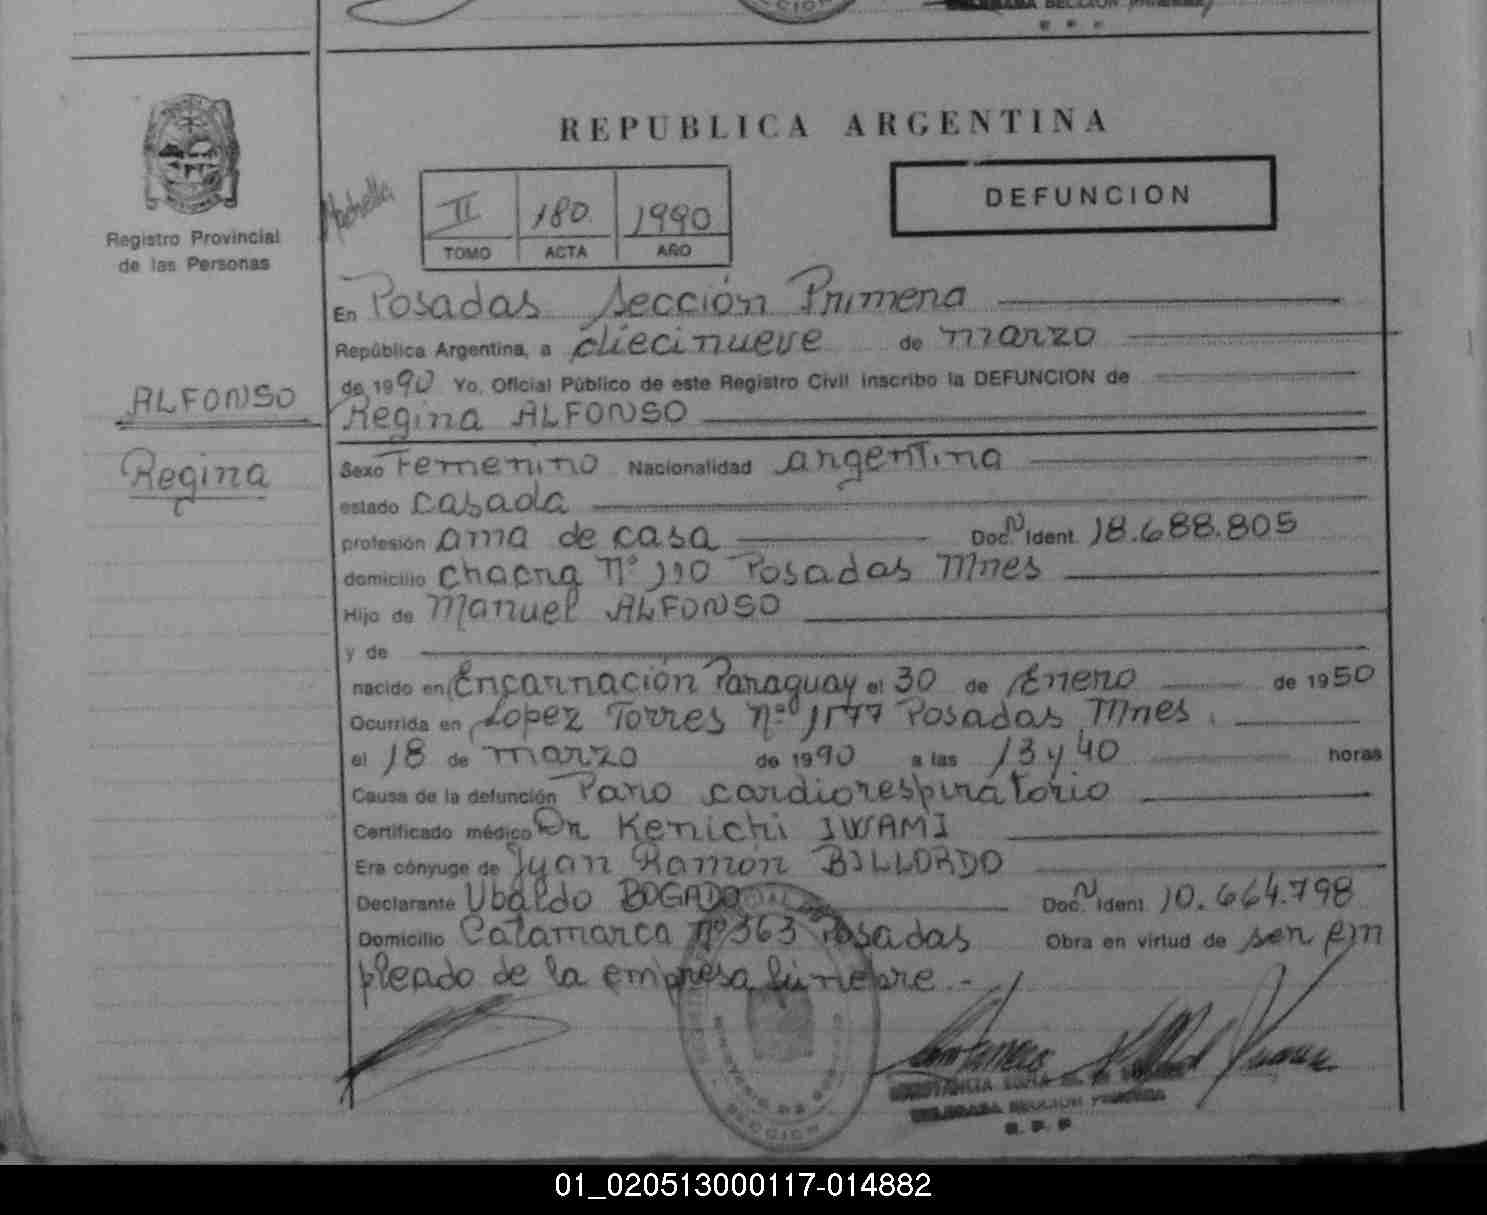 REPUBLICA ARGENTINA
DEFUNCION
II 180 1990
TOMO ACTA AÑO
Registro Provincial
de las Personas
ALFONSO
Regina
En Posadas Sección Primera
República Argentina, a diecinueve de marzo
de 1990 Yo, Oficial Público de este Registro Civil inscribo la DEFUNCION de
Regina ALFONSO
Sexo Femenino Nacionalidad argentina
estado casada
profesión ama de casa Doc. N Ident. 18.688.805
domicilio chacra Nº 110 Posadas Mnes
Hijo de Manuel ALFONSO
y de
nacido en Encarnación Paraguay el 30 de Enero de 1950
Ocurrida en Lopez Torres Nº Posadas Mnes
el 18 de marzo de 1990 a las 13 y 40 horas
Causa de la defunción Paro cardiorespiratorio
Certificado médico Dr Kenichi IWAMI
Era cónyuge de Juan Ramón BILLORDO
Declarante Ubaldo BOGADO Doc. N Ident. 10.664.798
Domicilio Catamarca Nº 363 Posadas Obra en virtud de ser em
pleado de la empresa fúnebre.-
DELEGADA SECCION PRIMERA
R. P. P.
01_020513000117-014882